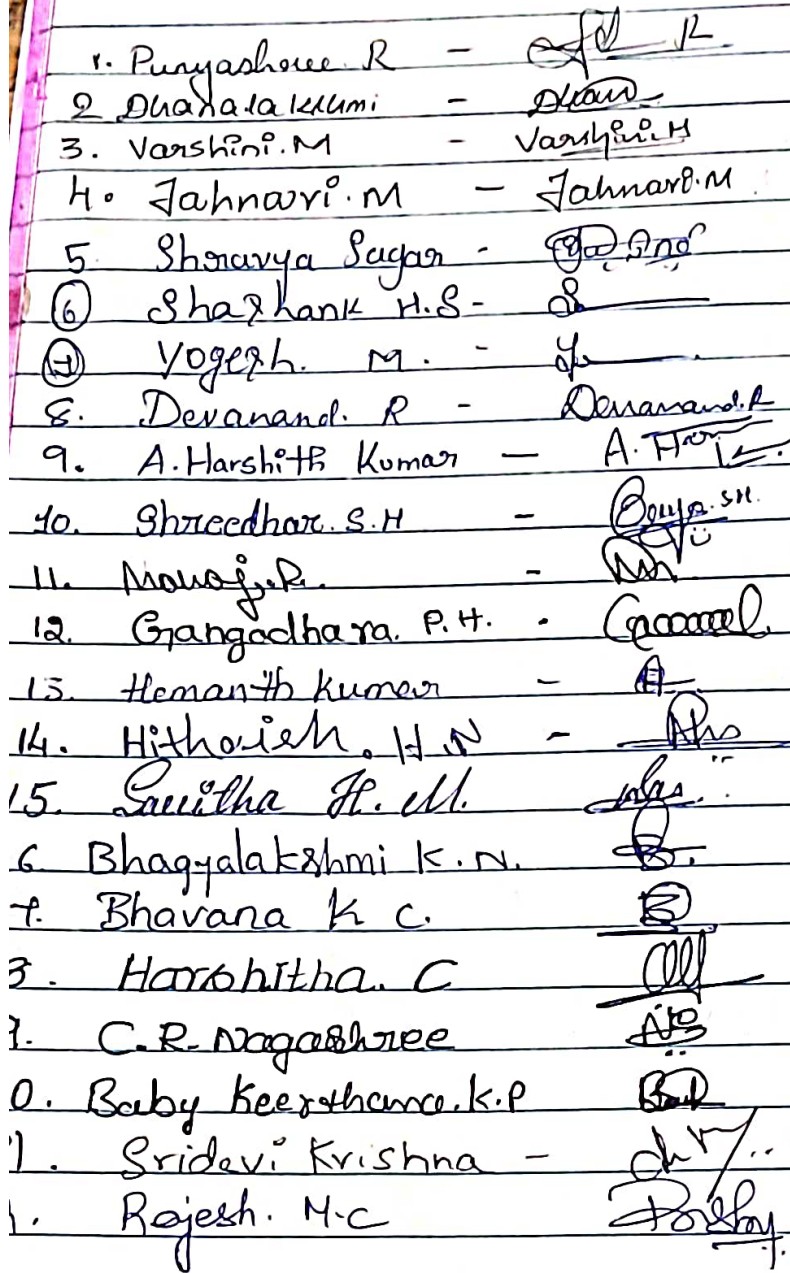 1. Punyashree R - R
2 Dhanalakshmi - Dhan
3. Varshini.M - Varshini.M
4. Jahnavi.M - Jahnavi.M
5 Shravya Sagar -
6 Shashank H.S -
7 Yogesh. M. -
8. Devanand. R - Devanand.R
9. A.Harshith Kumar - A. Har
10. Shreedhar.S.H - SH.
11. Manoj.R. -
12. Gangadhara. P.H. -
13. Hemanth Kumar - H
14. Hithaish. H.N -
15. Savitha H.M.
6 Bhagyalakshmi K.N. B.
7. Bhavana K C. B
8. Harshitha. C
9. C.R. Nagashree
0. Baby Keerthana.K.P
1. Sridevi Krishna -
Rajesh. M.C